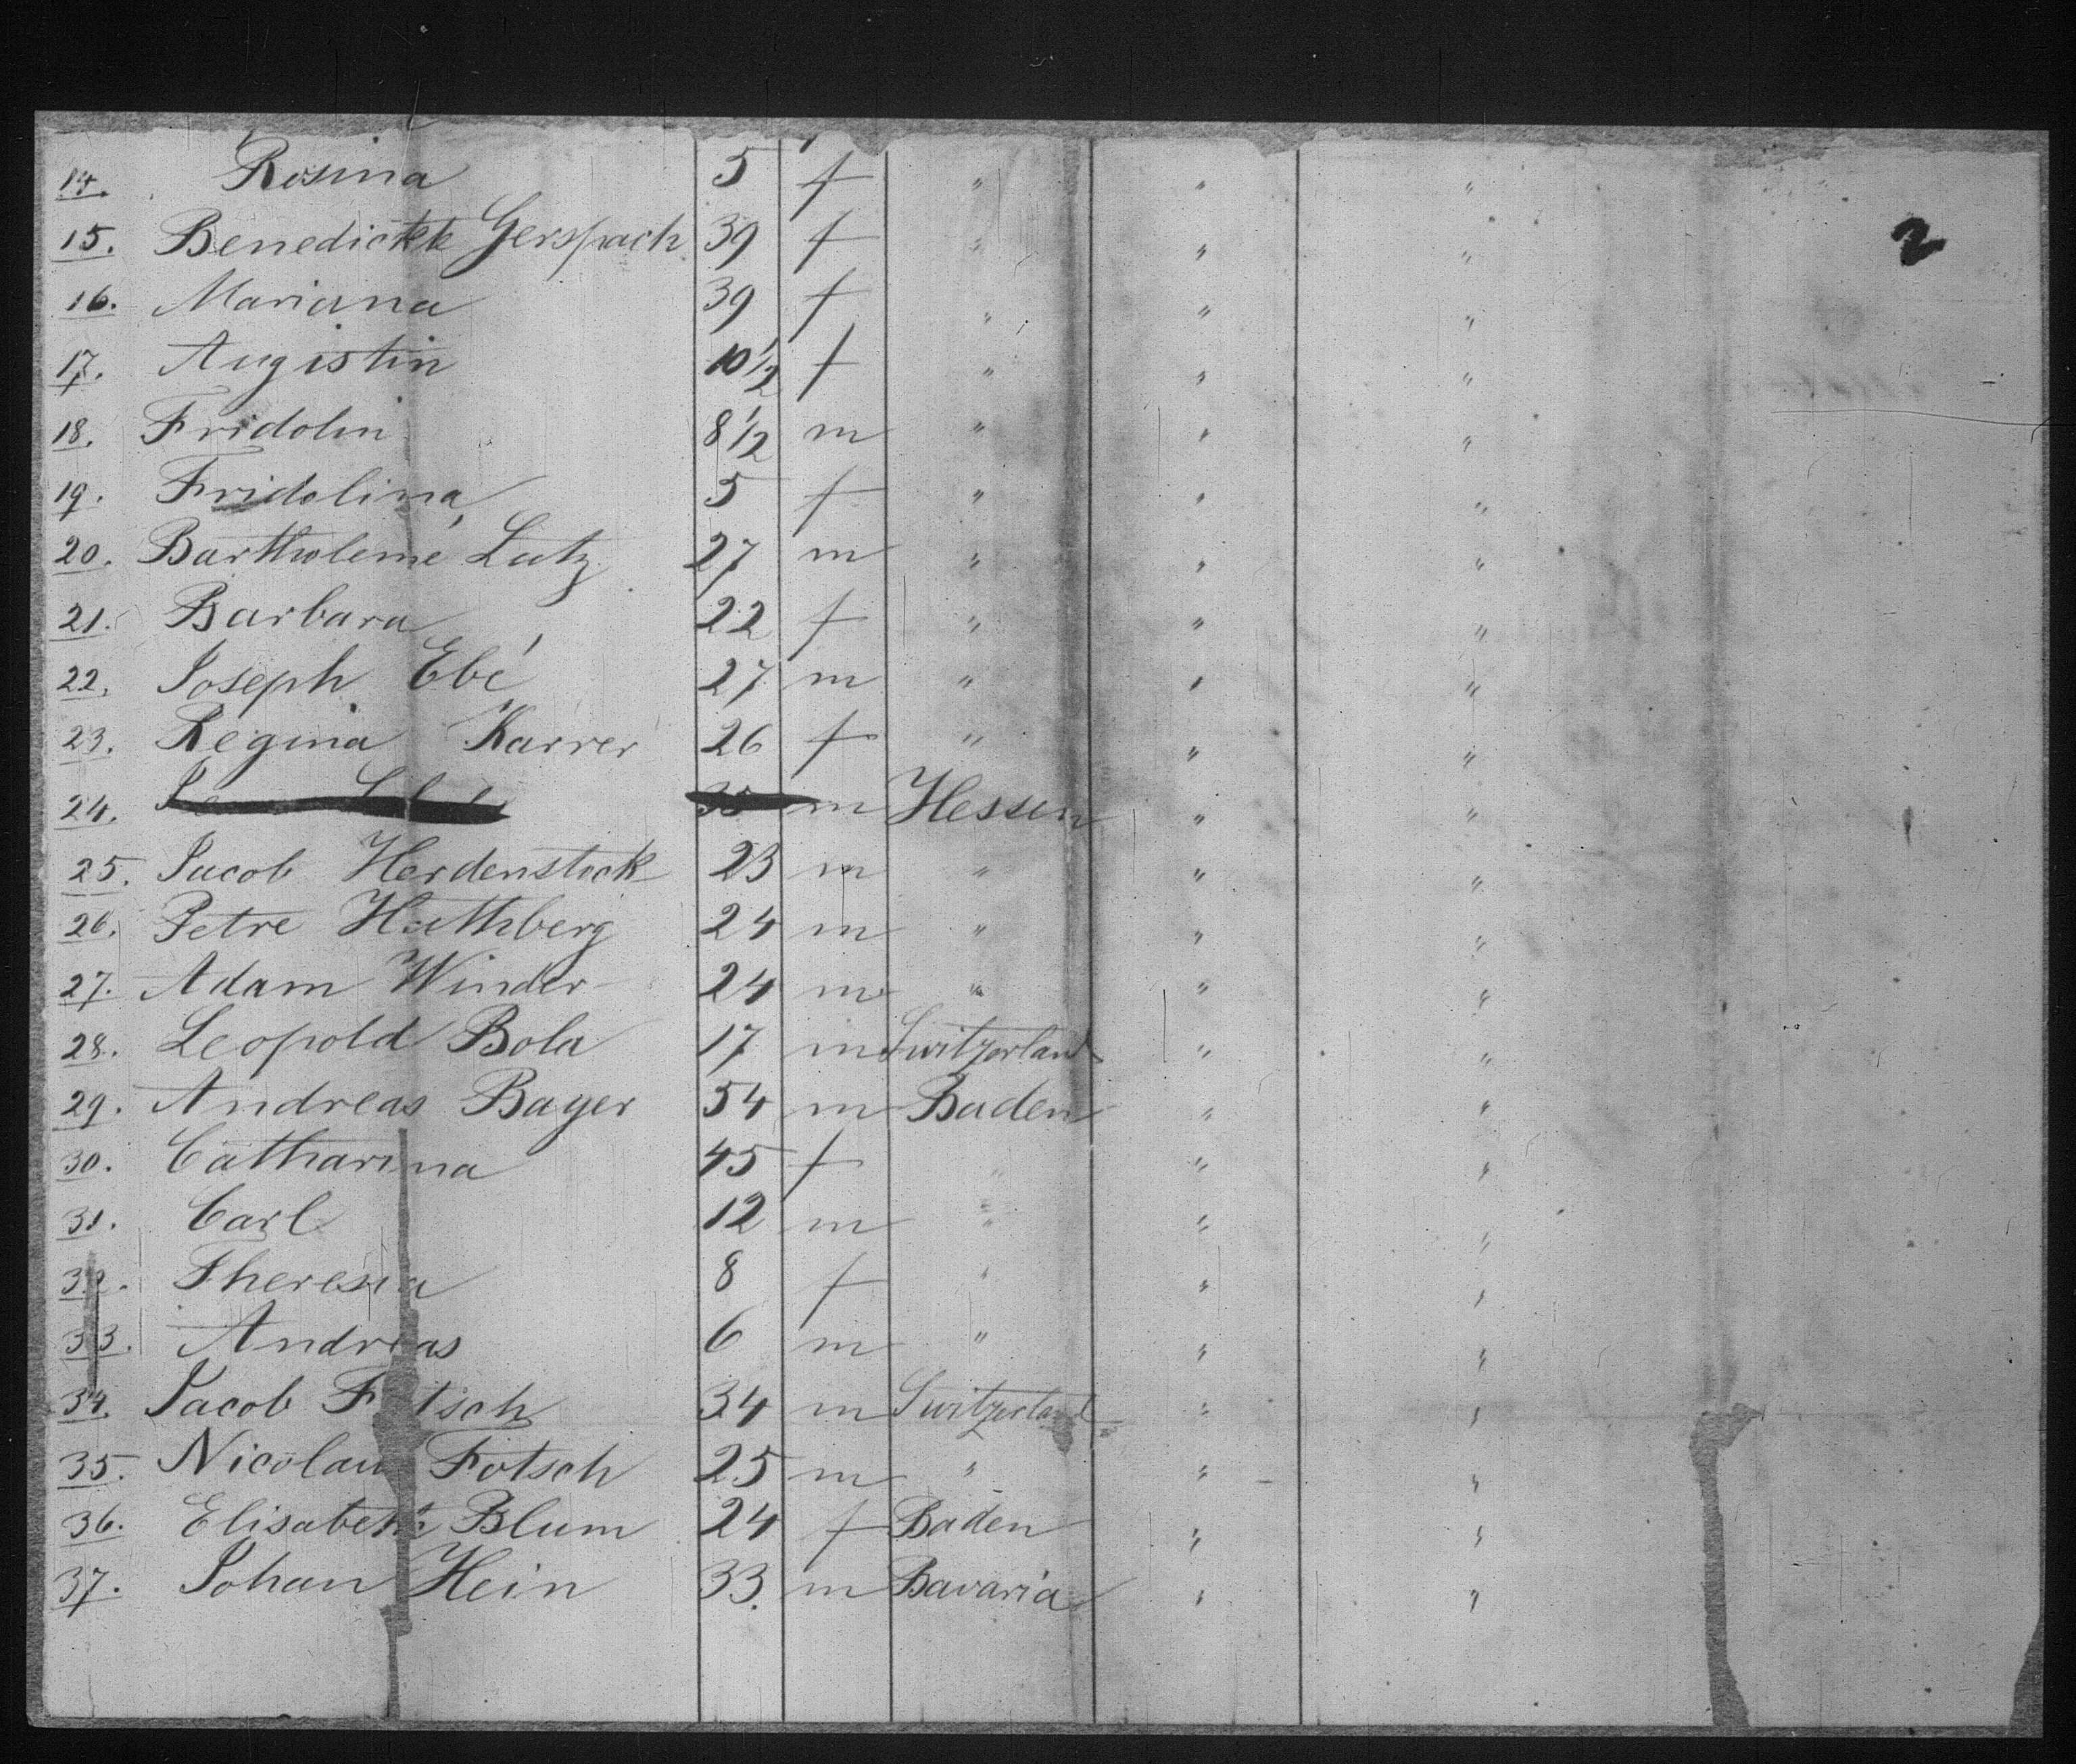 14. Rosina 5 f " " "
2
15. Benedickt Gerspach 39 f " " "
16. Mariana 39 f " " "
17. Augistin 10 1/2 f " " "
18. Fridolin 8 1/2 m " " "
19. Fridolina 5 f " " "
20. Bartholemé Lutz 27 m " " "
21. Barbara 22 f " " "
22. Joseph Ebé 27 m " " "
23. Regina Karrer 26 f " " "
24. m Hessen " "
25. Jacob Herdenstock 23 m " " "
26. Petre Huthberg 24 m " " "
27. Adam Winder 24 m " " "
28. Leopold Bola 17 m Switzerland " "
29. Andreas Bayer 54 m Baden " "
30. Catharina 45 f " " "
31. Carl 12 m " " "
32. Theresia 8 f " " "
33. Andreas 6 m " " "
34. Jacob 34 m Switzerland " "
35. Nicolaus Fotsch 25 m " " "
36. Elisabeth Blum 24 f Baden " "
37. Johan Hein 33. m Bavaria " "